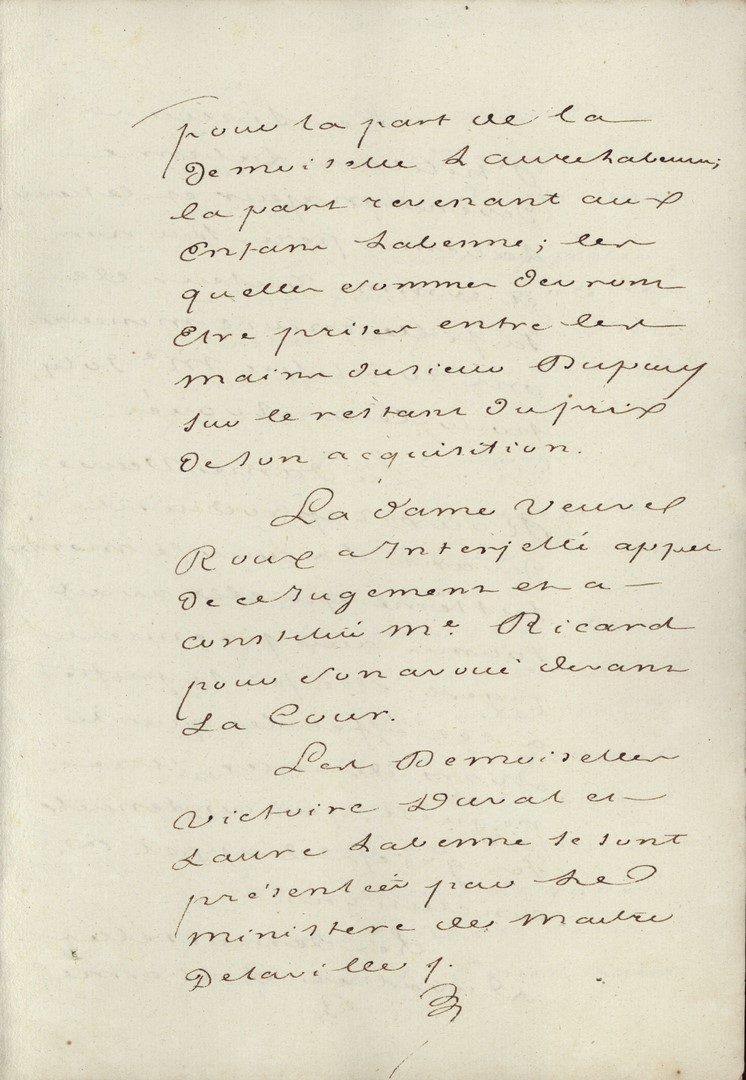 pour la part de la
Demoiselle Laure Labenne;
la part revenant aux
Enfans Labenne; les
quelles sommes devront
Etre prises entre les
mains du sieur Dupuy
sur le restant du prix
de son acquisition.
La dame veuve
Roux a Interjetté appel
de ce Jugement et a
constitué Me. Ricard
pour son avoué devant
La Cour.
Les Demoiselles
Victoire Duval et
Laure Labenne se sont
présentées par Le
ministere de Maitre
Delaville